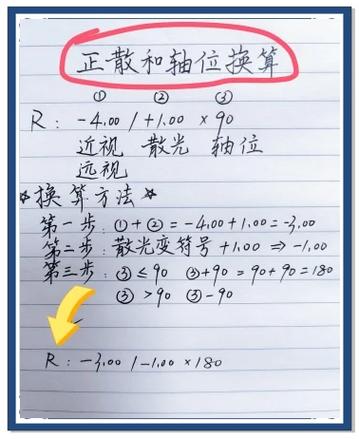 正散和轴位换算
① ② ③
R: -4.00 / +1.00 × 90
近视 散光 轴位
远视
*换算方法*
第一步: ①+② = -4.00+1.00 = -3.00
第二步: 散光变符号 +1.00 ⇒ -1.00
第三步: ③≤90 ③+90 = 90+90 = 180
③>90 ③-90
R: -3.00 / -1.00 × 180